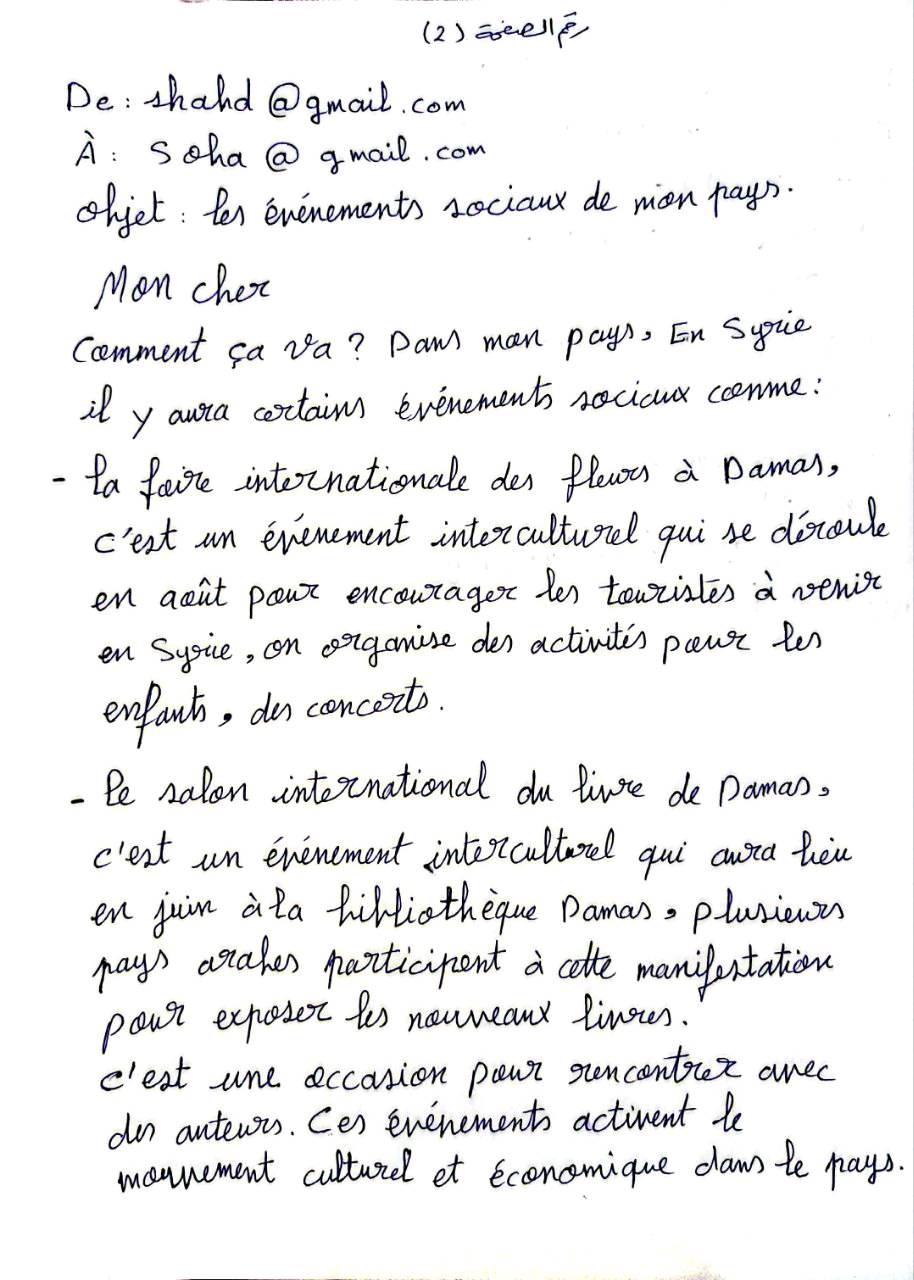 رقم الصفحة (2)
De : shahd @gmail.com
À : Soha @ gmail.com
Objet : les événements sociaux de mon pays.
Mon cher
Comment ça va ? Dans mon pays, En Syrie
il y aura certains événements sociaux comme :
- La foire internationale des fleurs à Damas,
c'est un événement interculturel qui se déroule
en août pour encourager les touristes à venir
en Syrie, on organise des activités pour les
enfants, des concerts.
- Le salon international du livre de Damas,
c'est un événement interculturel qui aura lieu
en juin à la bibliothèque Damas, plusieurs
pays arabes participent à cette manifestation
pour exposer les nouveaux livres.
c'est une occasion pour rencontrer avec
des auteurs. Ces événements activent le
mouvement culturel et économique dans le pays.